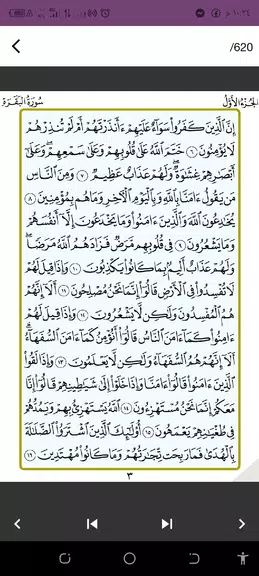 ١٠:٢٤
/620
سُورَةُ البَقَرَةِ
الجُزْءُ الأَوَّلُ
إِنَّ ٱلَّذِينَ كَفَرُوا۟ سَوَآءٌ عَلَيْهِمْ ءَأَنذَرْتَهُمْ أَمْ لَمْ تُنذِرْهُمْ
لَا يُؤْمِنُونَ ٦ خَتَمَ ٱللَّهُ عَلَىٰ قُلُوبِهِمْ وَعَلَىٰ سَمْعِهِمْ ۖ وَعَلَىٰٓ
أَبْصَٰرِهِمْ غِشَٰوَةٌ ۖ وَلَهُمْ عَذَابٌ عَظِيمٌ ٧ وَمِنَ ٱلنَّاسِ
مَن يَقُولُ ءَامَنَّا بِٱللَّهِ وَبِٱلْيَوْمِ ٱلْـَٔاخِرِ وَمَا هُم بِمُؤْمِنِينَ ٨
يُخَٰدِعُونَ ٱللَّهَ وَٱلَّذِينَ ءَامَنُوا۟ وَمَا يَخْدَعُونَ إِلَّآ أَنفُسَهُمْ
وَمَا يَشْعُرُونَ ٩ فِى قُلُوبِهِم مَّرَضٌ فَزَادَهُمُ ٱللَّهُ مَرَضًا ۖ
وَلَهُمْ عَذَابٌ أَلِيمٌۢ بِمَا كَانُوا۟ يَكْذِبُونَ ١٠ وَإِذَا قِيلَ لَهُمْ
لَا تُفْسِدُوا۟ فِى ٱلْأَرْضِ قَالُوٓا۟ إِنَّمَا نَحْنُ مُصْلِحُونَ ١١ أَلَآ إِنَّهُمْ
هُمُ ٱلْمُفْسِدُونَ وَلَٰكِن لَّا يَشْعُرُونَ ١٢ وَإِذَا قِيلَ لَهُمْ
ءَامِنُوا۟ كَمَآ ءَامَنَ ٱلنَّاسُ قَالُوٓا۟ أَنُؤْمِنُ كَمَآ ءَامَنَ ٱلسُّفَهَآءُ ۗ
أَلَآ إِنَّهُمْ هُمُ ٱلسُّفَهَآءُ وَلَٰكِن لَّا يَعْلَمُونَ ١٣ وَإِذَا لَقُوا۟
ٱلَّذِينَ ءَامَنُوا۟ قَالُوٓا۟ ءَامَنَّا وَإِذَا خَلَوْا۟ إِلَىٰ شَيَٰطِينِهِمْ قَالُوٓا۟ إِنَّا
مَعَكُمْ إِنَّمَا نَحْنُ مُسْتَهْزِءُونَ ١٤ ٱللَّهُ يَسْتَهْزِئُ بِهِمْ وَيَمُدُّهُمْ
فِى طُغْيَٰنِهِمْ يَعْمَهُونَ ١٥ أُو۟لَٰٓئِكَ ٱلَّذِينَ ٱشْتَرَوُا۟ ٱلضَّلَٰلَةَ
بِٱلْهُدَىٰ فَمَا رَبِحَت تِّجَٰرَتُهُمْ وَمَا كَانُوا۟ مُهْتَدِينَ ١٦
٣